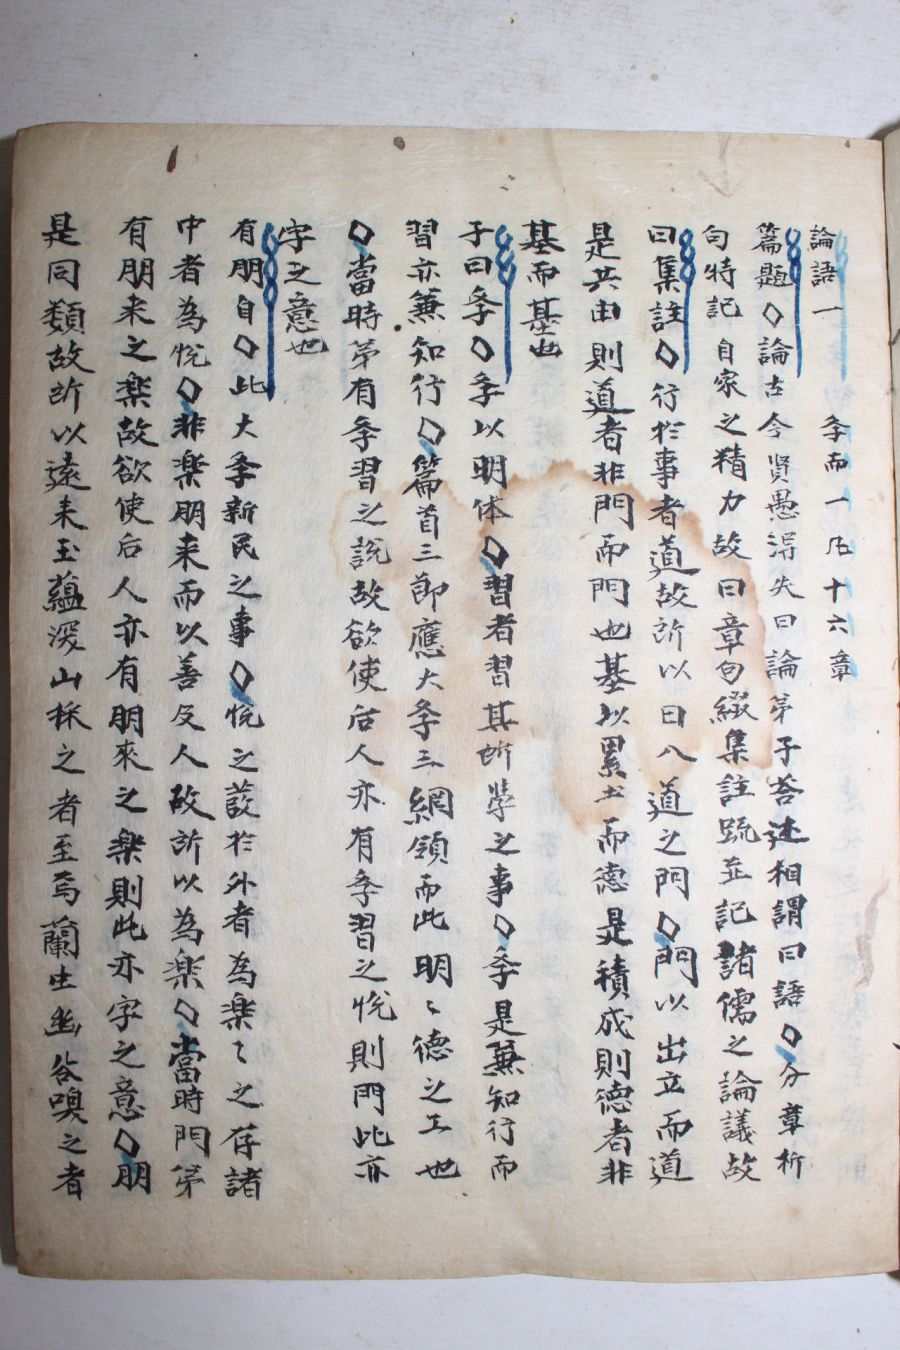 論語一 斈而一 凡十六章
篇題◇論古今賢愚淂失曰論弟子荅述相謂曰語◇分章析
句特記自家之精力故曰章句綴集註䟽並記諸儒之論議故
曰集註◇行於事者道故所以曰入道之門◇門以出立而道
是共由則道者非門而門也基以累土而德是積成則德者非
基而基也
子曰斈◇斈以明体◇習者習其所斈之事◇斈是兼知行而
習亦兼知行◇篇首三節應大斈三綱領而此明〻德之工也
◇當時苐有斈習之說故欲使后人亦有斈習之悅則門此亦
字之意也
有朋自◇此大斈新民之事◇悅之叢於外者為楽〻之存諸
中者為悅◇非楽朋来而以善及人故所以為楽◇當時門苐
有朋来之楽故欲使后人亦有朋來之楽則此亦字之意◇朋
是同類故所以遠来玉蘊深山採之者至焉蘭生幽谷嗅之者